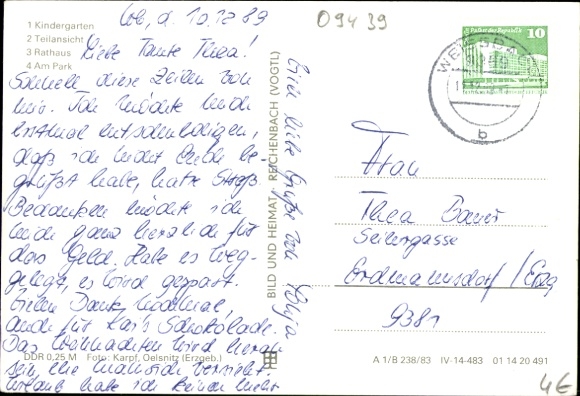 1 Kindergarten
2 Teilansicht
3 Rathaus
4 Am Park
d. 10.12.89
Liebe Tante Thea!
Schnell diese Zeilen von
mir. Ich möchte mich
erstmal entschuldigen,
daß ich nicht Ende be-
grüßt habe, hatte
Bedanken möchte ich
mich ganz herzlich für
das Geld. Habe es weg-
gelegt, es wird gespart.
Vielen Dank nochmal,
auch für Kai's Schokolade.
Das Weihnachten wird heran
sein, ehe man sich versieht.
Urlaub habe ich keinen mehr
DDR 0,25 M Foto: Karpf, Oelsnitz (Erzgeb.)
Viele liebe Grüße von
BILD UND HEIMAT REICHENBACH (VOGTL)
09439
Palast der Republik
10
b
Frau
Thea Bauer
Seilergasse
Erdmannsdorf / Erzg
9381
A 1/B 238/83 IV-14-483 01 14 20 491
4€